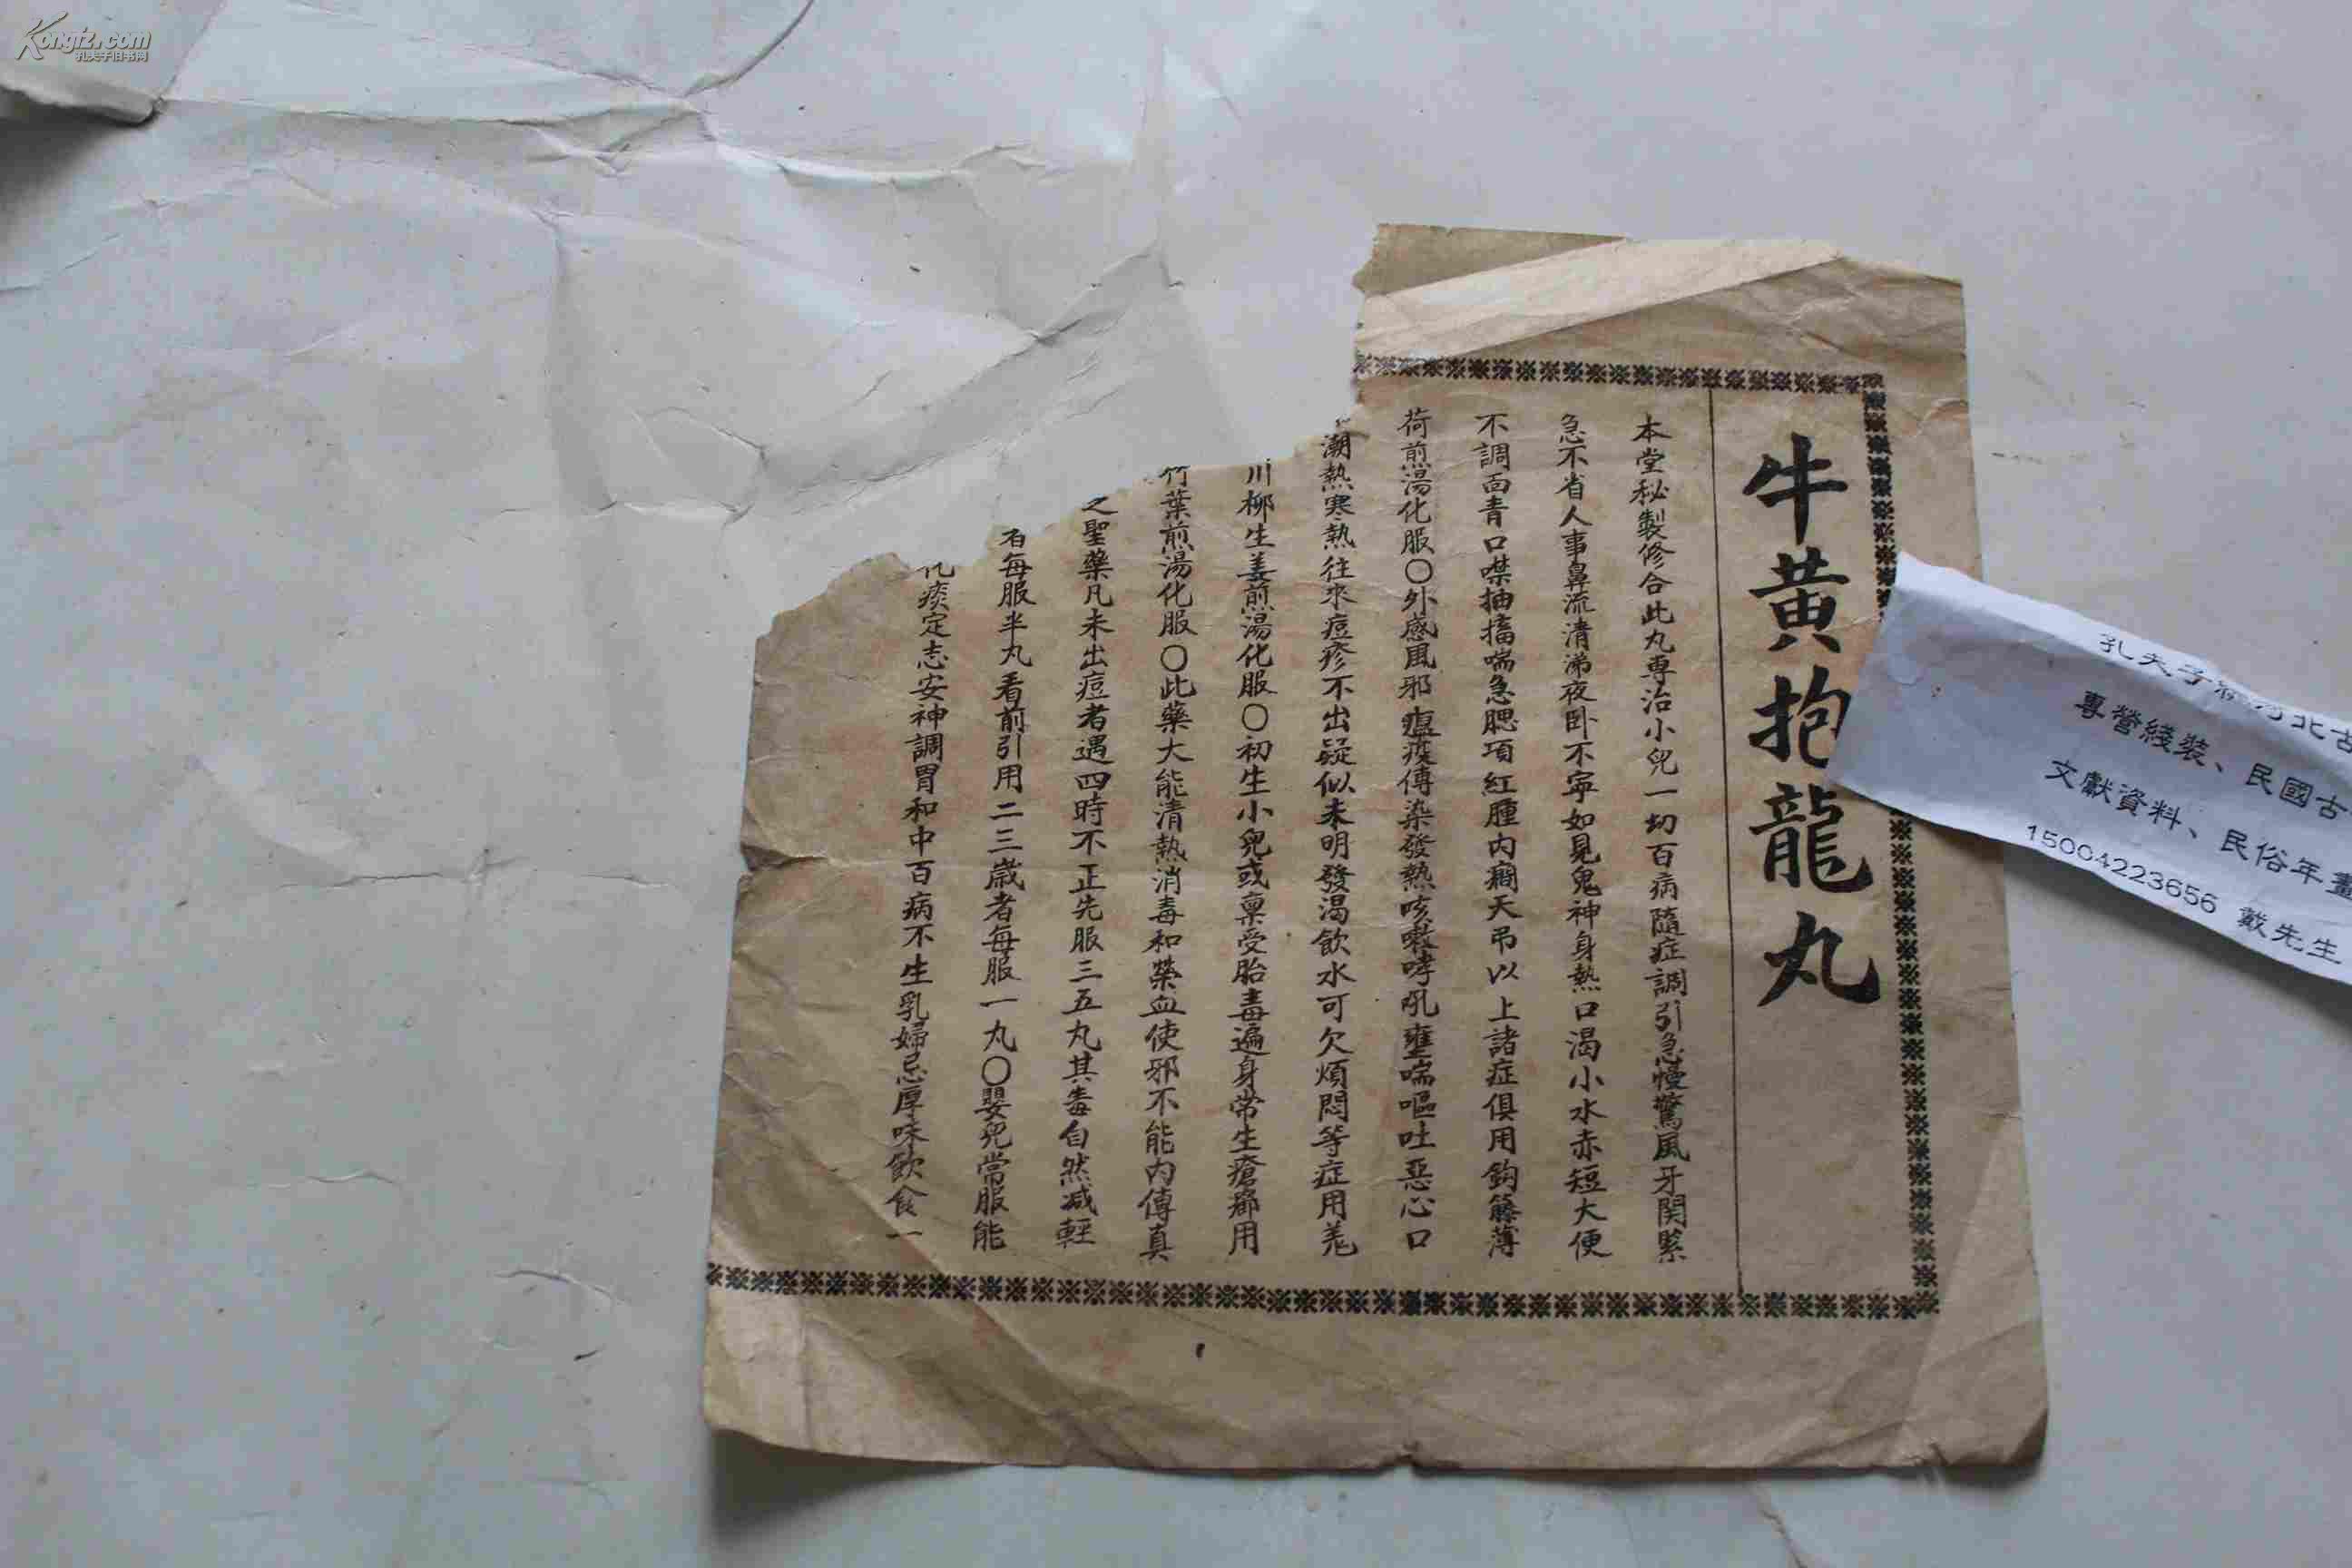 Kongfz.com
孔夫子旧书网
牛黃抱龍丸
本堂秘製修合此丸專治小兒一切百病隨症調引急慢驚風牙関緊
急不省人事鼻流清涕夜卧不寕如見鬼神身熱口渴小水赤短大便
不調面青口噤抽搐喘急腮項紅腫內癎天吊以上諸症俱用鈎籐薄
荷煎湯化服〇外感風邪瘟疫傳染發熱咳嗽哮吼壅喘嘔吐惡心口
潮熱寒熱往來痘疹不出疑似未明發渴飲水可欠煩悶等症用羗
川柳生姜煎湯化服〇初生小兒或禀受胎毒遍身常生瘡癤用
竹葉煎湯化服〇此藥大能清熱消毒和榮血使邪不能內傳真
之聖藥凡未出痘者遇四時不正先服三五丸其毒自然减輕
者每服半丸看前引用二三歲者每服一丸〇嬰兒常服能
化痰定志安神調胃和中百病不生乳婦忌厚味飲食一
孔夫子 河北古
專營綫裝、民國古
文獻資料、民俗年畫
15004223656 戴先生